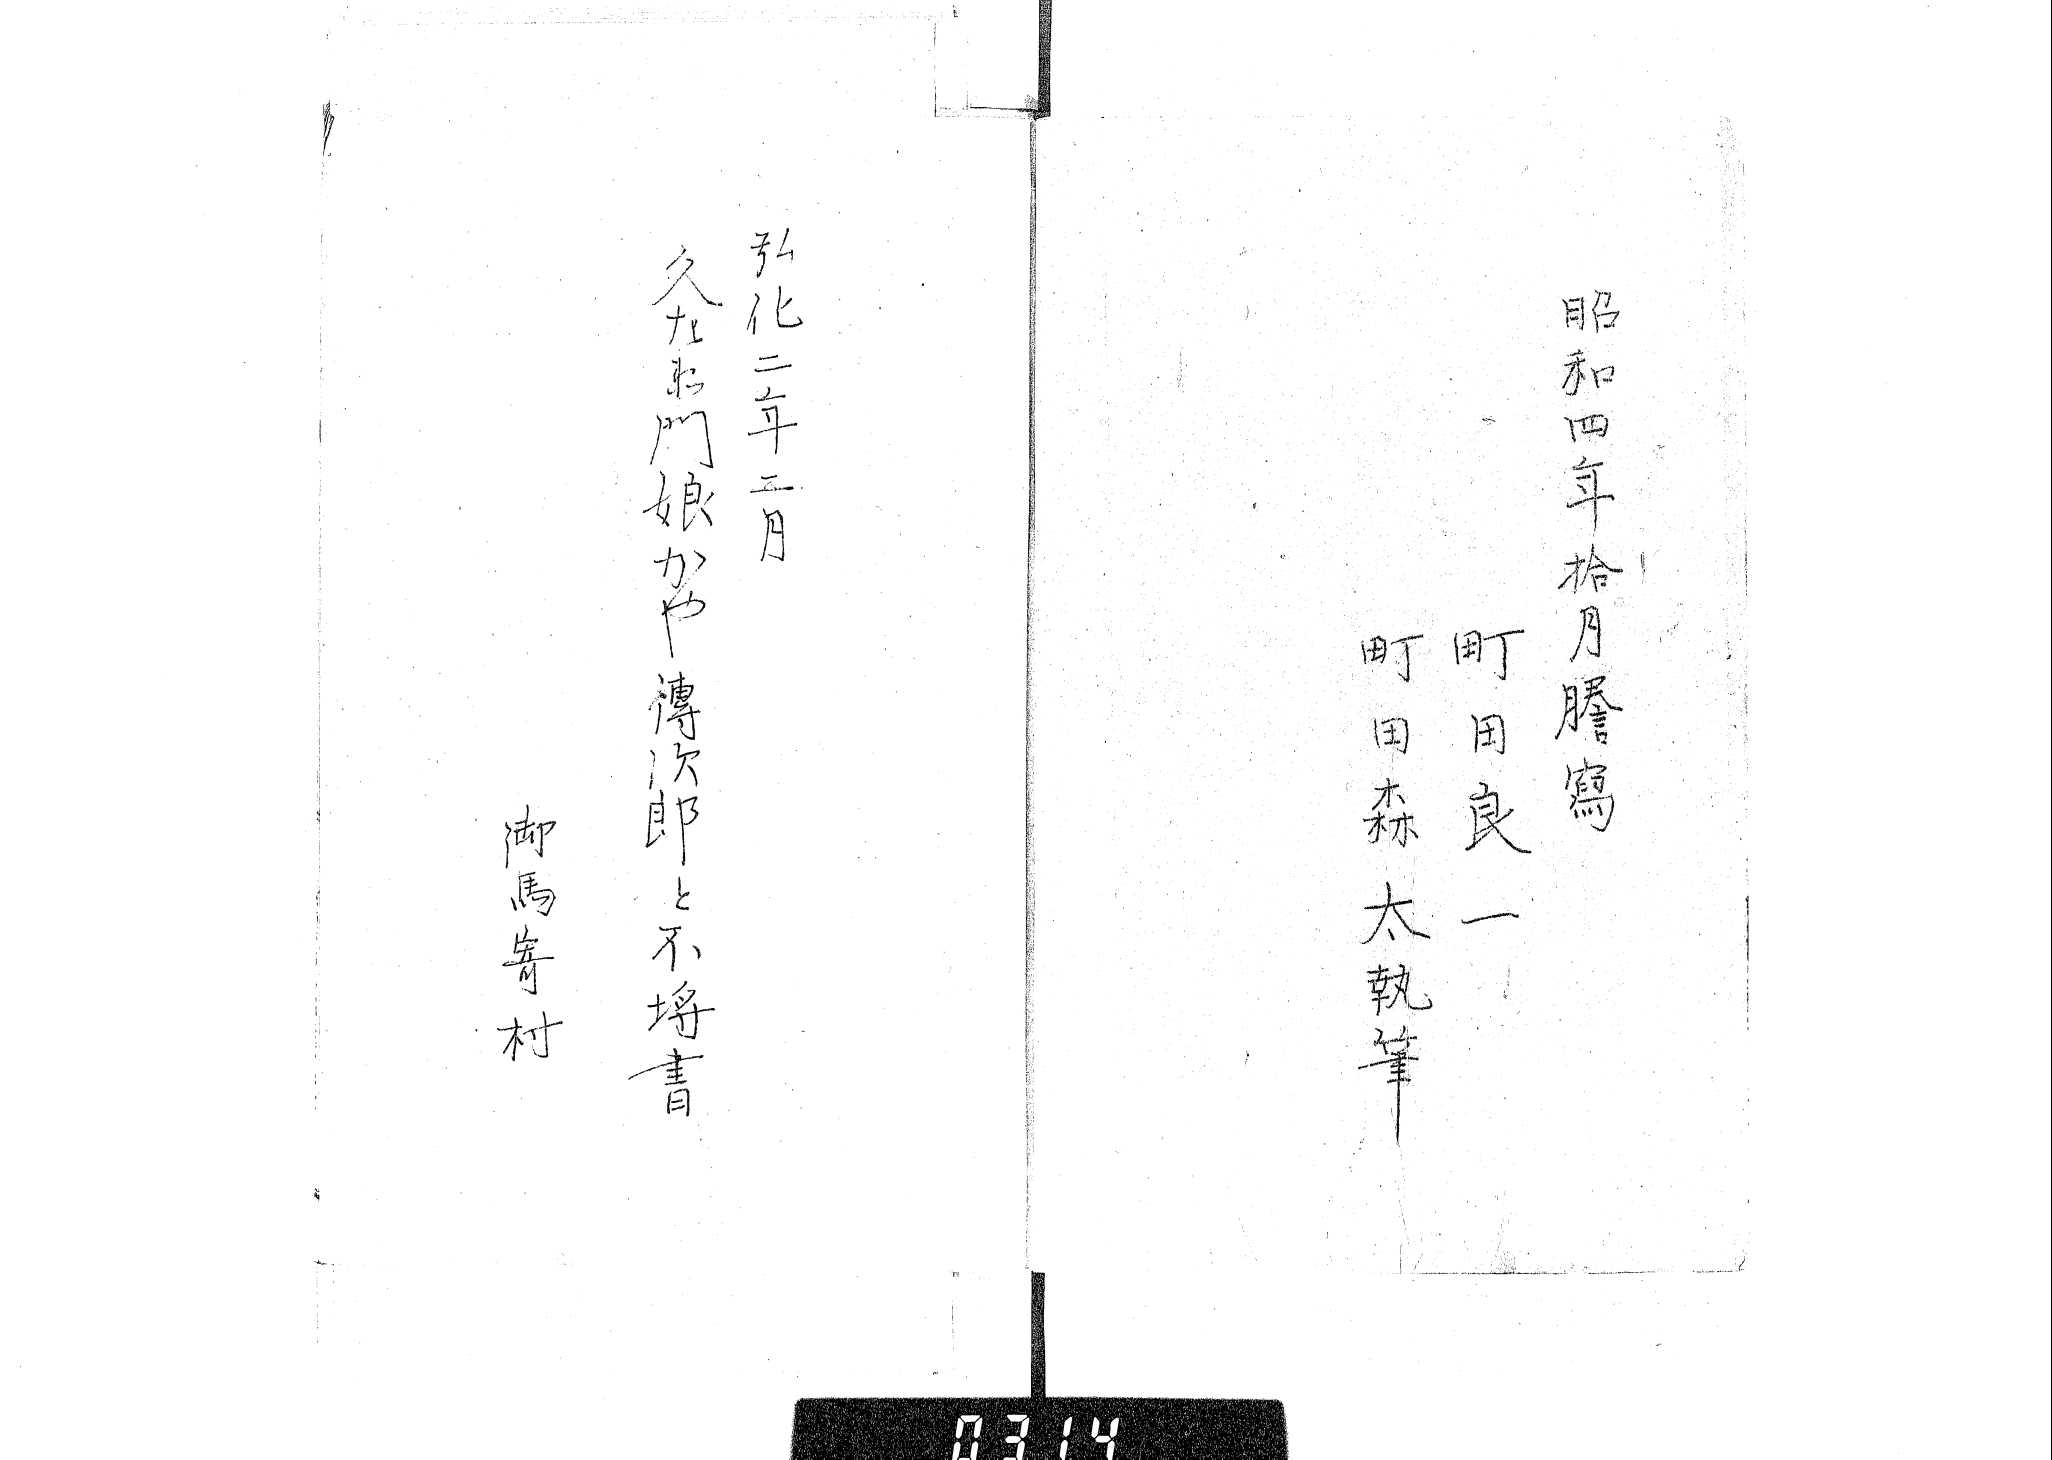 昭和四年拾月謄寫
町田良一
町田森太執筆
弘化二年三月
久左衛門娘かや傳次郎と不埒書
御馬寄村
0314